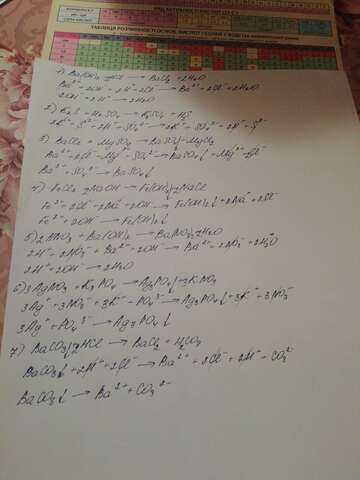 ТАБЛИЦЯ РОЗЧИННОСТІ ОСНОВ, КИСЛОТ І СОЛЕЙ У ВОДІ
1) Ba(OH)2 + 2HCl → BaCl2 + 2H2O
Ba²⁺ + 2OH⁻ + 2H⁺ + 2Cl⁻ → Ba²⁺ + 2Cl⁻ + 2H2O
2OH⁻ + 2H⁺ → 2H2O
2) K2S + H2SO4 → K2SO4 + H2S
2K⁺ + S²⁻ + 2H⁺ + SO4²⁻ → 2K⁺ + SO4²⁻ + 2H⁺ + S²⁻
3) BaCl2 + MgSO4 → BaSO4↓ + MgCl2
Ba²⁺ + 2Cl⁻ + Mg²⁺ + SO4²⁻ → BaSO4↓ + Mg²⁺ + 2Cl⁻
Ba²⁺ + SO4²⁻ → BaSO4↓
4) FeCl2 + 2NaOH → Fe(OH)2↓ + 2NaCl
Fe²⁺ + 2Cl⁻ + 2Na⁺ + 2OH⁻ → Fe(OH)2↓ + 2Na⁺ + 2Cl⁻
Fe²⁺ + 2OH⁻ → Fe(OH)2↓
5) 2HNO3 + Ba(OH)2 → Ba(NO3)2 + 2H2O
2H⁺ + 2NO3⁻ + Ba²⁺ + 2OH⁻ → Ba²⁺ + 2NO3⁻ + 2H2O
2H⁺ + 2OH⁻ → 2H2O
6) 3AgNO3 + K3PO4 → Ag3PO4↓ + 3KNO3
3Ag⁺ + 3NO3⁻ + 3K⁺ + PO4³⁻ → Ag3PO4↓ + 3K⁺ + 3NO3⁻
3Ag⁺ + PO4³⁻ → Ag3PO4↓
7) BaCO3↓ + 2HCl → BaCl2 + H2CO3
BaCO3↓ + 2H⁺ + 2Cl⁻ → Ba²⁺ + 2Cl⁻ + 2H⁺ + CO3²⁻
BaCO3↓ → Ba²⁺ + CO3²⁻